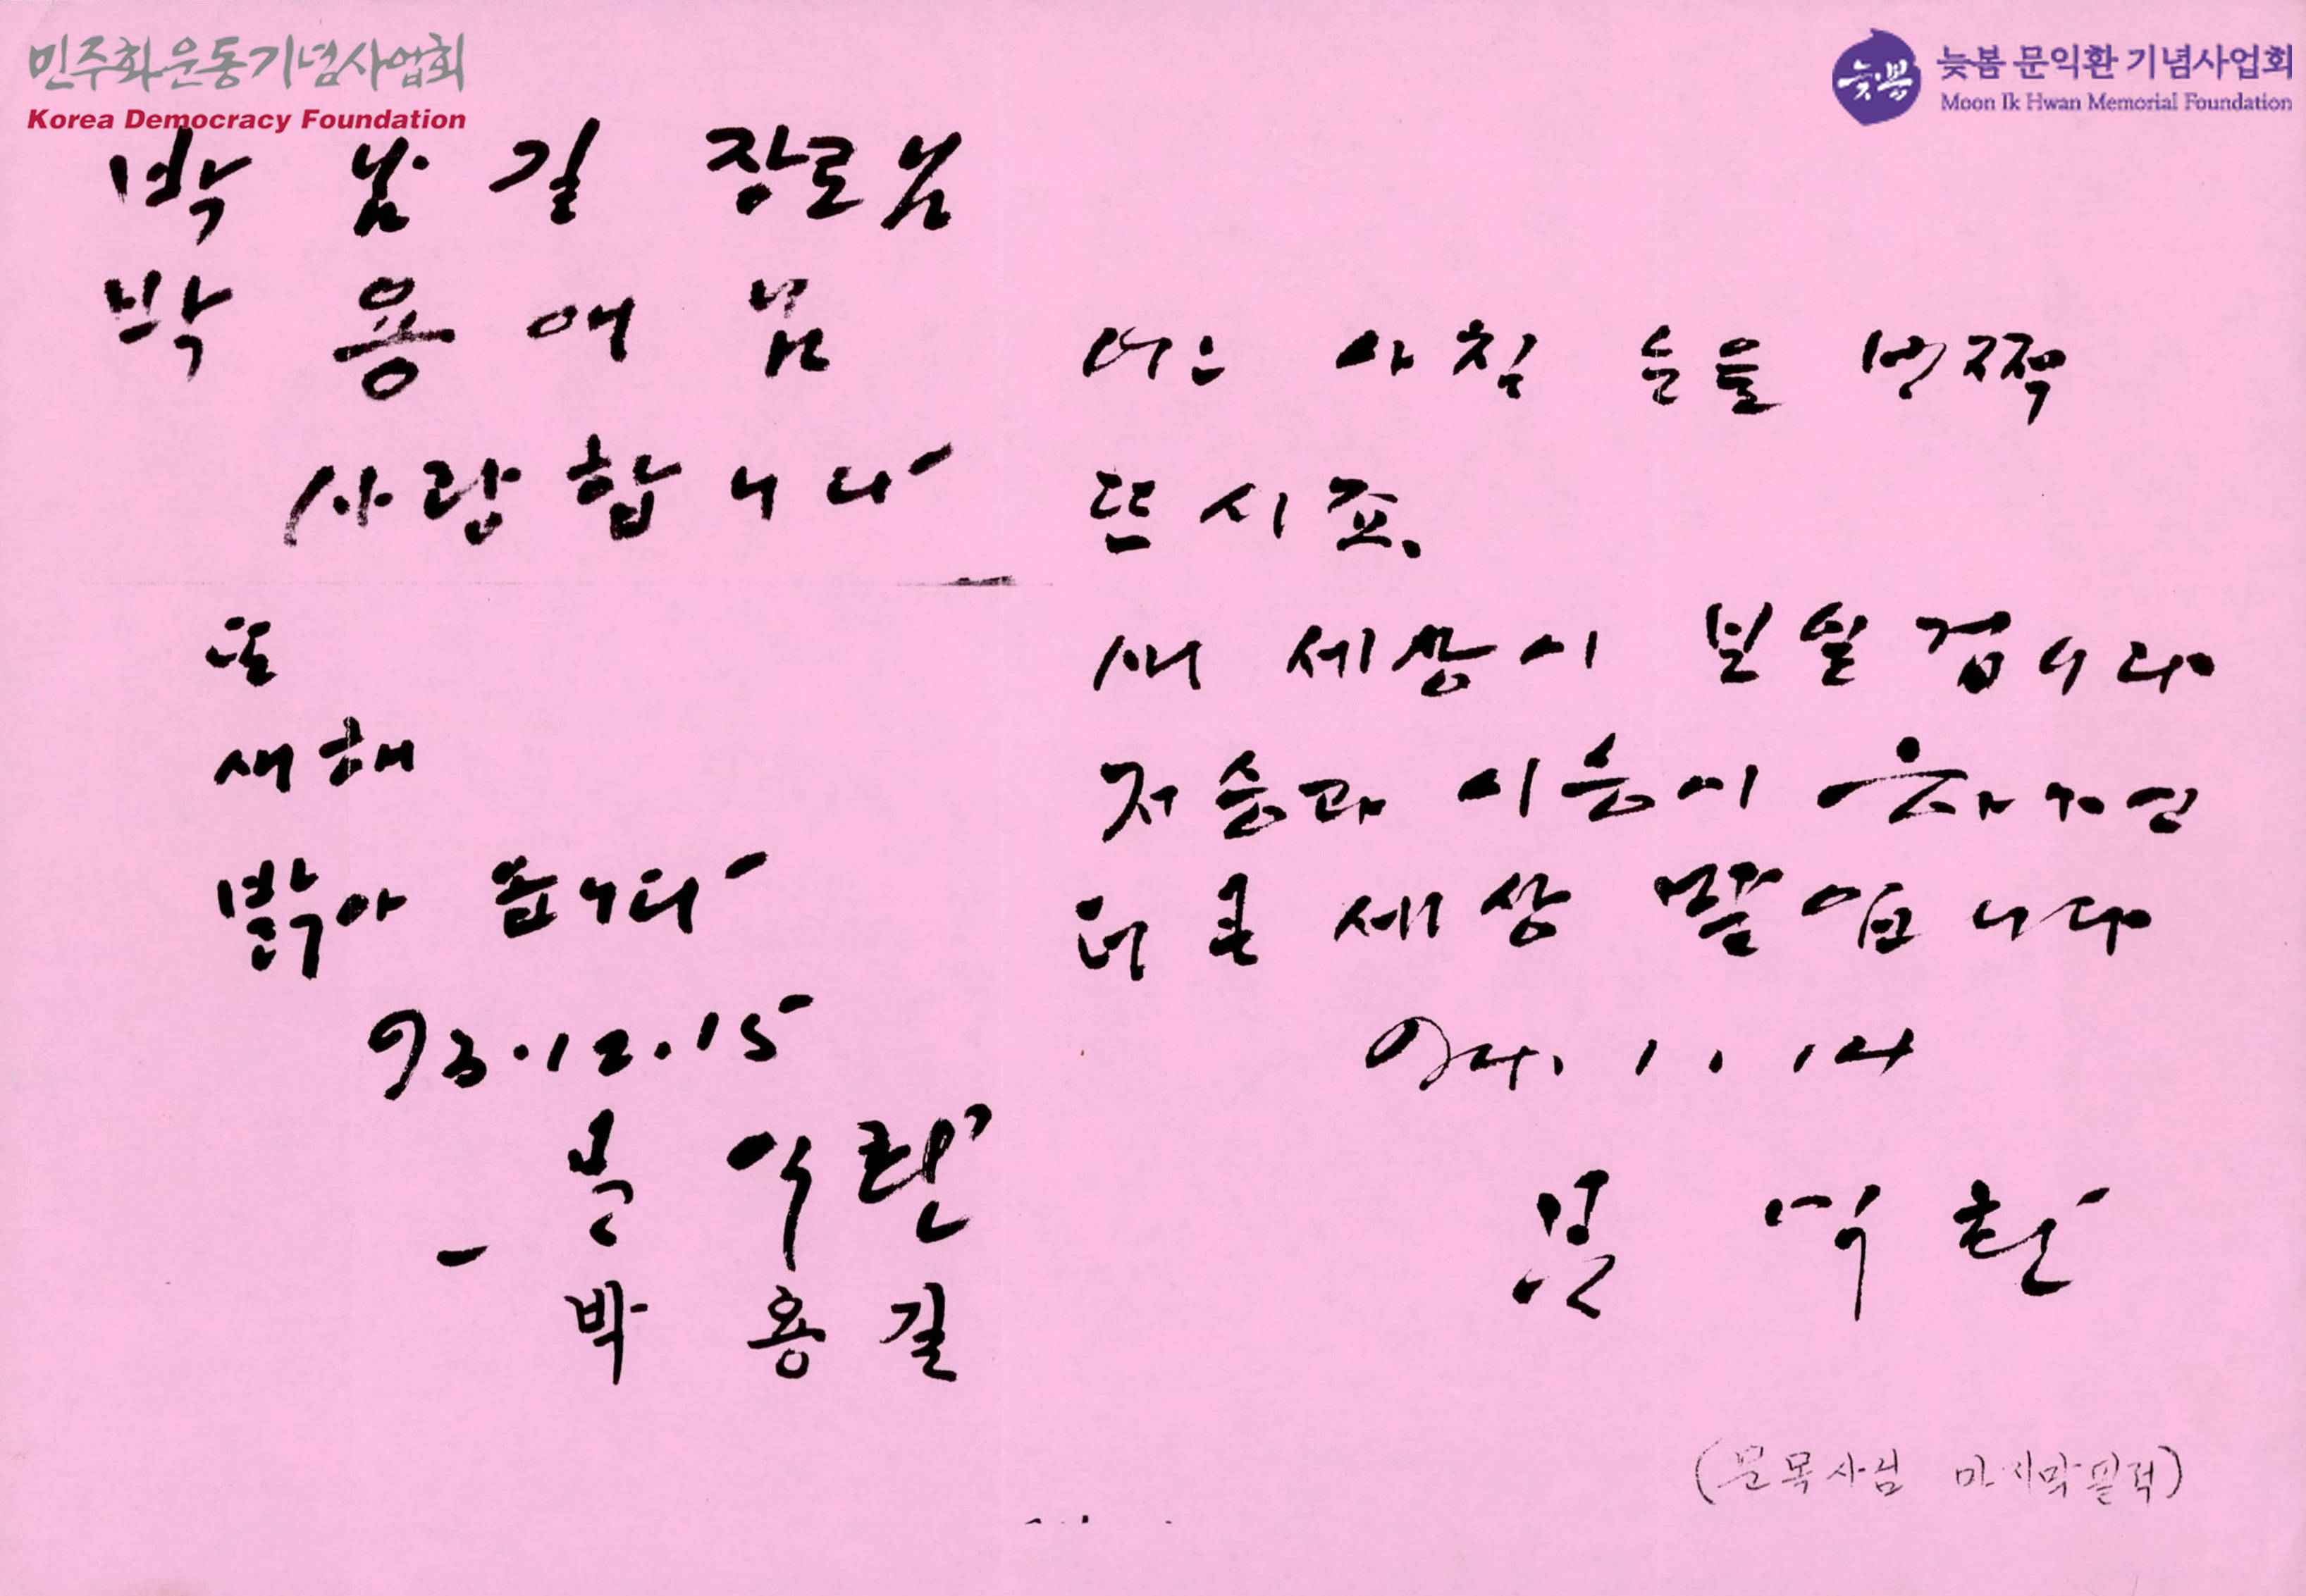 민주화운동기념사업회
Korea Democracy Foundation
늦봄
늦봄 문익환 기념사업회
Moon Ik Hwan Memorial Foundation
박 남 길 장로님
박 용 애 님
사랑합니다
또
새해
밝아 옵니다
93.12.15
문 익환
박 용 길
어느 아침 눈을 번쩍
뜨시죠.
새 세상이 보일 겁니다
저승과 이승이 하나 된
더 큰 세상 말입니다
94. 1. 14
문 익환
(문목사님 마지막필적)